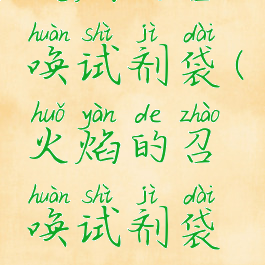 huàn shì jì dài
唤试剂袋(
huǒ yàn de zhào
火焰的召
huàn shì jì dài
唤试剂袋